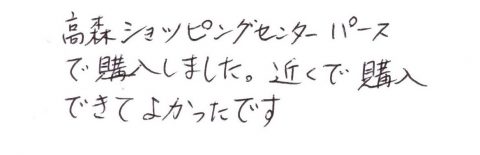 高森ショッピングセンター パース
で購入しました。近くで購入
できてよかったです